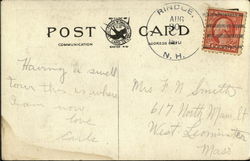 RINDGE
AUG
N.H.
POST CARD
COMMUNICATION
ADDRESS ONLY
Having a swell
tour this is where
I am now
love
Mrs F. N. Smith
617 North Main St
West Leominster
Mass